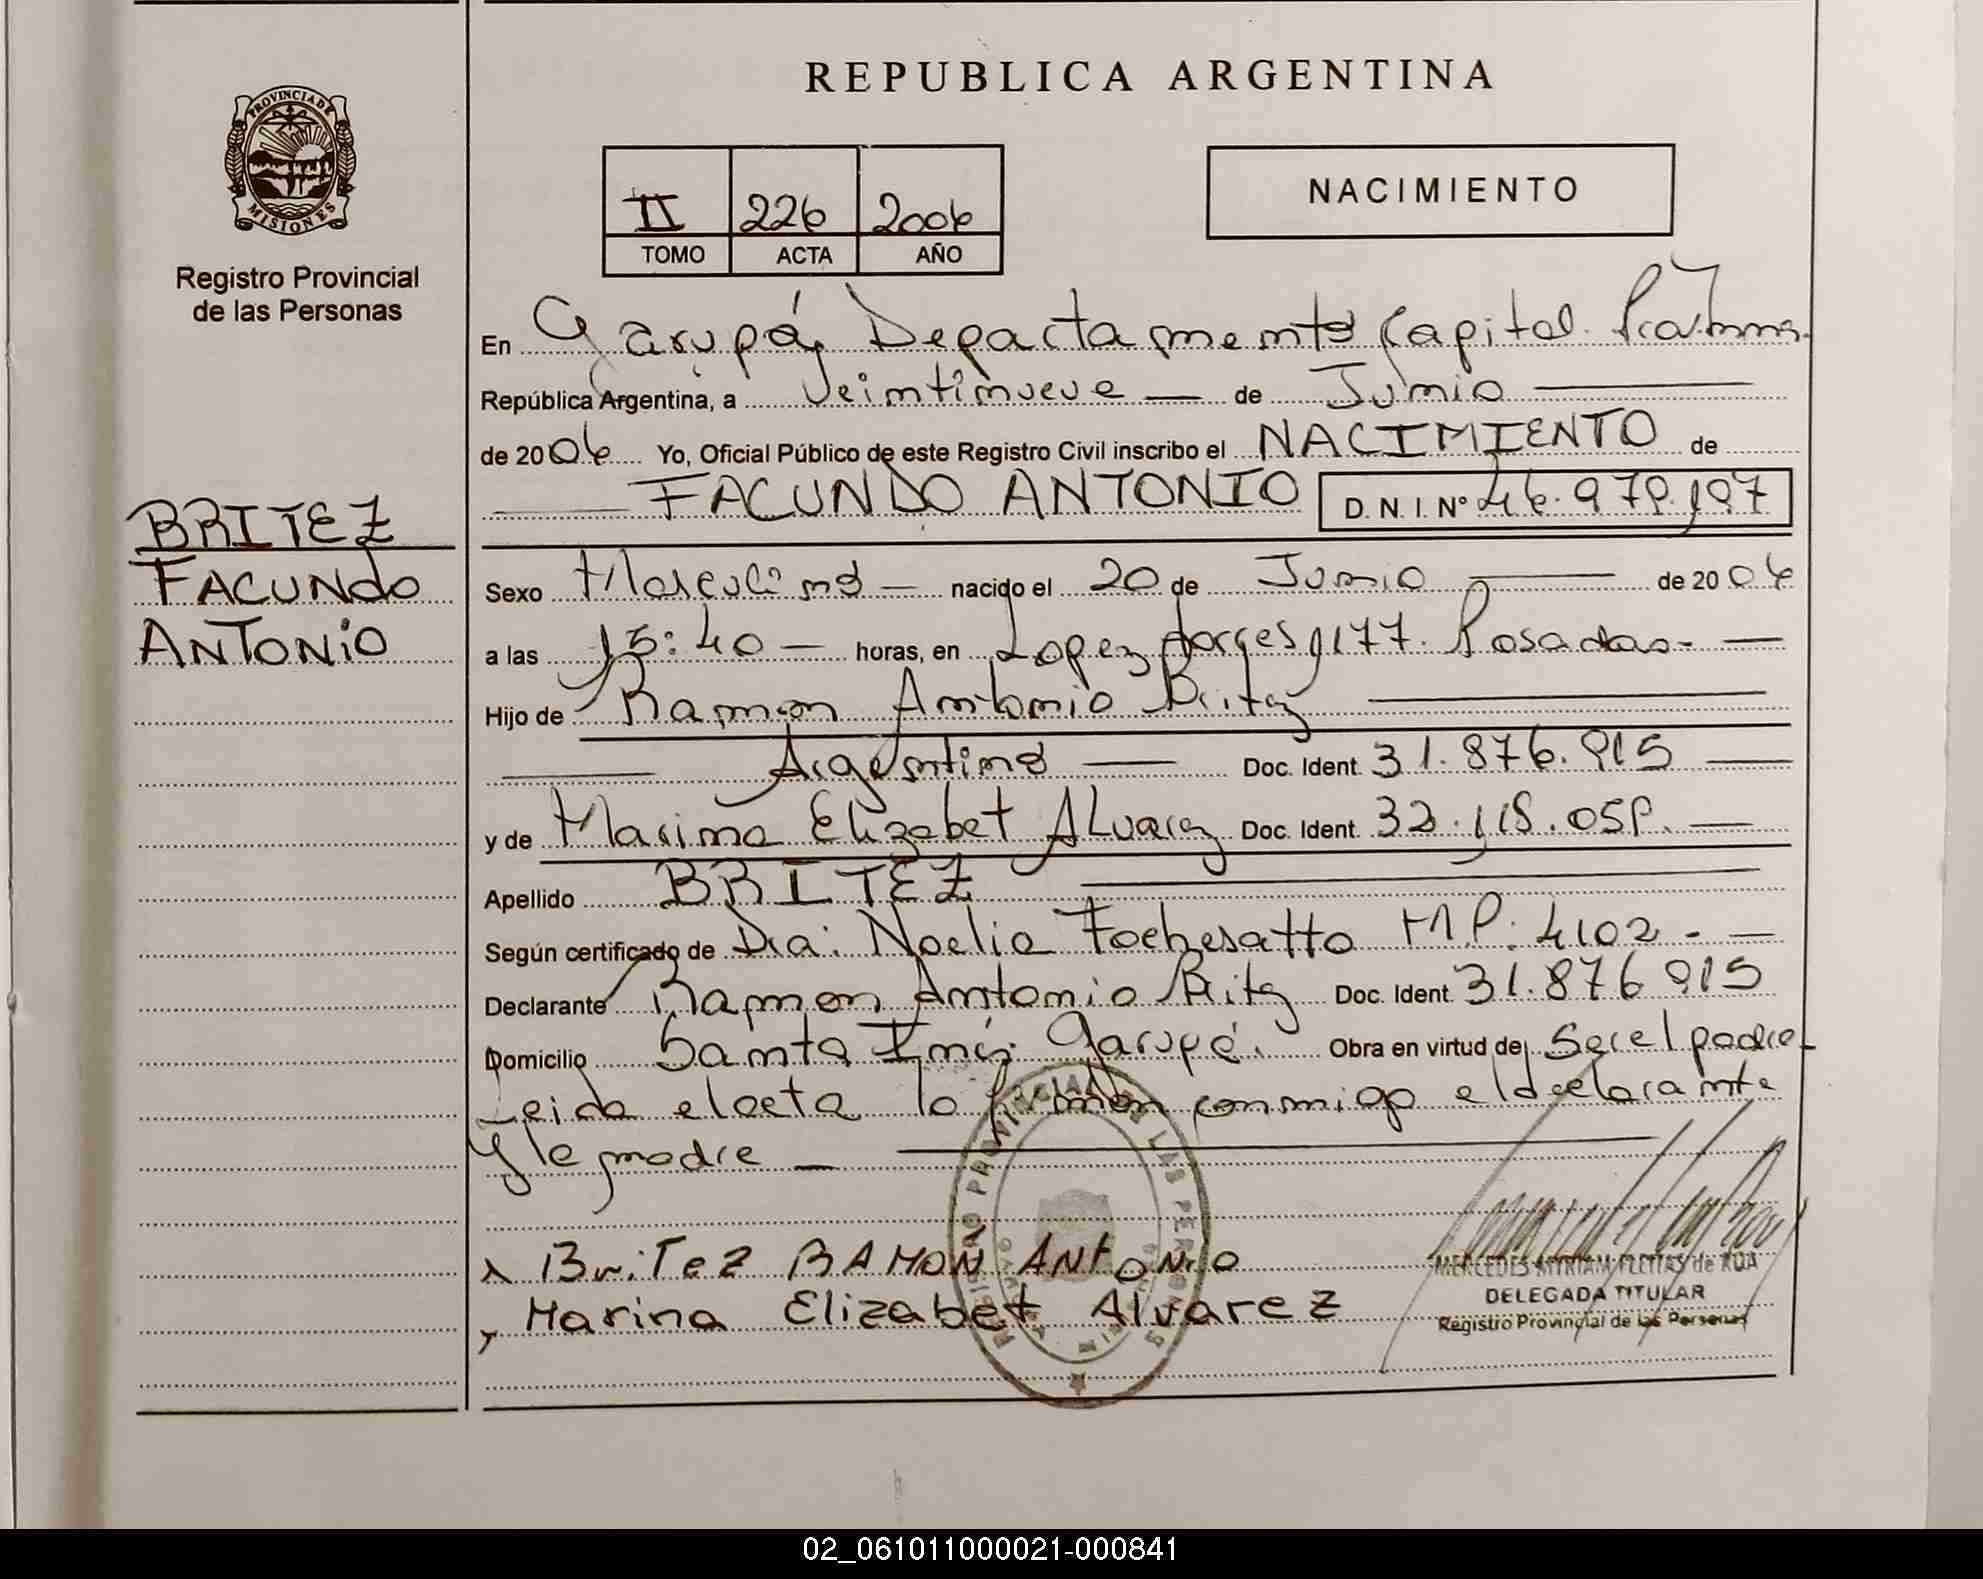 REPUBLICA ARGENTINA
PROVINCIA DE MISIONES
Registro Provincial
de las Personas
II 226 2006
TOMO ACTA AÑO
NACIMIENTO
En Garupá, Departamento Capital
República Argentina, a Veintinueve de Junio
de 2006 Yo, Oficial Público de este Registro Civil inscribo el NACIMIENTO de
FACUNDO ANTONIO D. N. I. Nº
BRITEZ
FACUNDO
ANTONIO
Sexo Masculino nacido el 20 de Junio de 2006
a las 15:40 horas, en Lopez Torres 1177. Posadas.-
Hijo de Ramon Antonio Britez
Argentino Doc. Ident. 31.876.915
y de Marina Elizabet Alvarez Doc. Ident.
Apellido BRITEZ
Según certificado de Dra: Noelia Fochesatto M.P: 4102.-
Declarante Ramon Antonio Britez Doc. Ident. 31.876.915
Domicilio Santa Inés Garupá. Obra en virtud de Ser el padre
Leida el acta la firman conmigo el declarante
y la madre
REGISTRO PROVINCIAL DE LAS PERSONAS
Britez RAMON ANTONIO
Marina Elizabet Alvarez
MERCEDES MYRIAM FLEITAS de ROA
DELEGADA TITULAR
Registro Provincial de las Personas
02_061011000021-000841